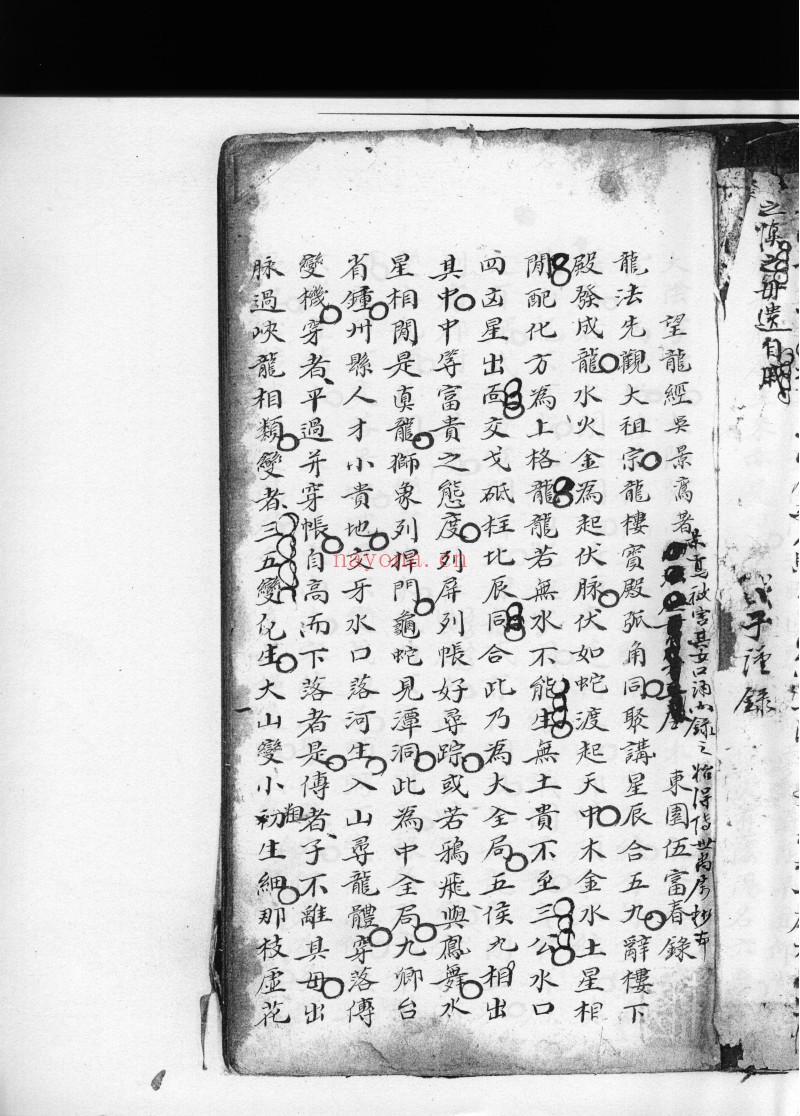 之慎之毋遺自賊
子謹錄
望龍經吳景鸞著 東園伍富春錄
龍法先觀大祖宗龍樓寶殿弧角同聚講星辰合五九辭樓下
殿發成龍水火金為起伏脉伏如蛇渡起天中木金水土星相
間配化方為上格龍龍若無水不能生無土貴不至三公水口
四凶星出面交戈砥柱北辰同合此乃為大全局五侯九相出
其中中等富貴之態度列屏列帳好尋踪或若鴉飛與鳳舞水
星相間是真龍獅象列捍門龜蛇見潭洞此為中全局九卿台
省鍾州縣人才小貴地交牙水口落河生入山尋龍體穿落傳
變機穿者平過并穿帳自高而下落者是傳者子不離其母出
脉過峽龍相類變者三五變化生大山變小粗生細那枝虛花
nayona.cn